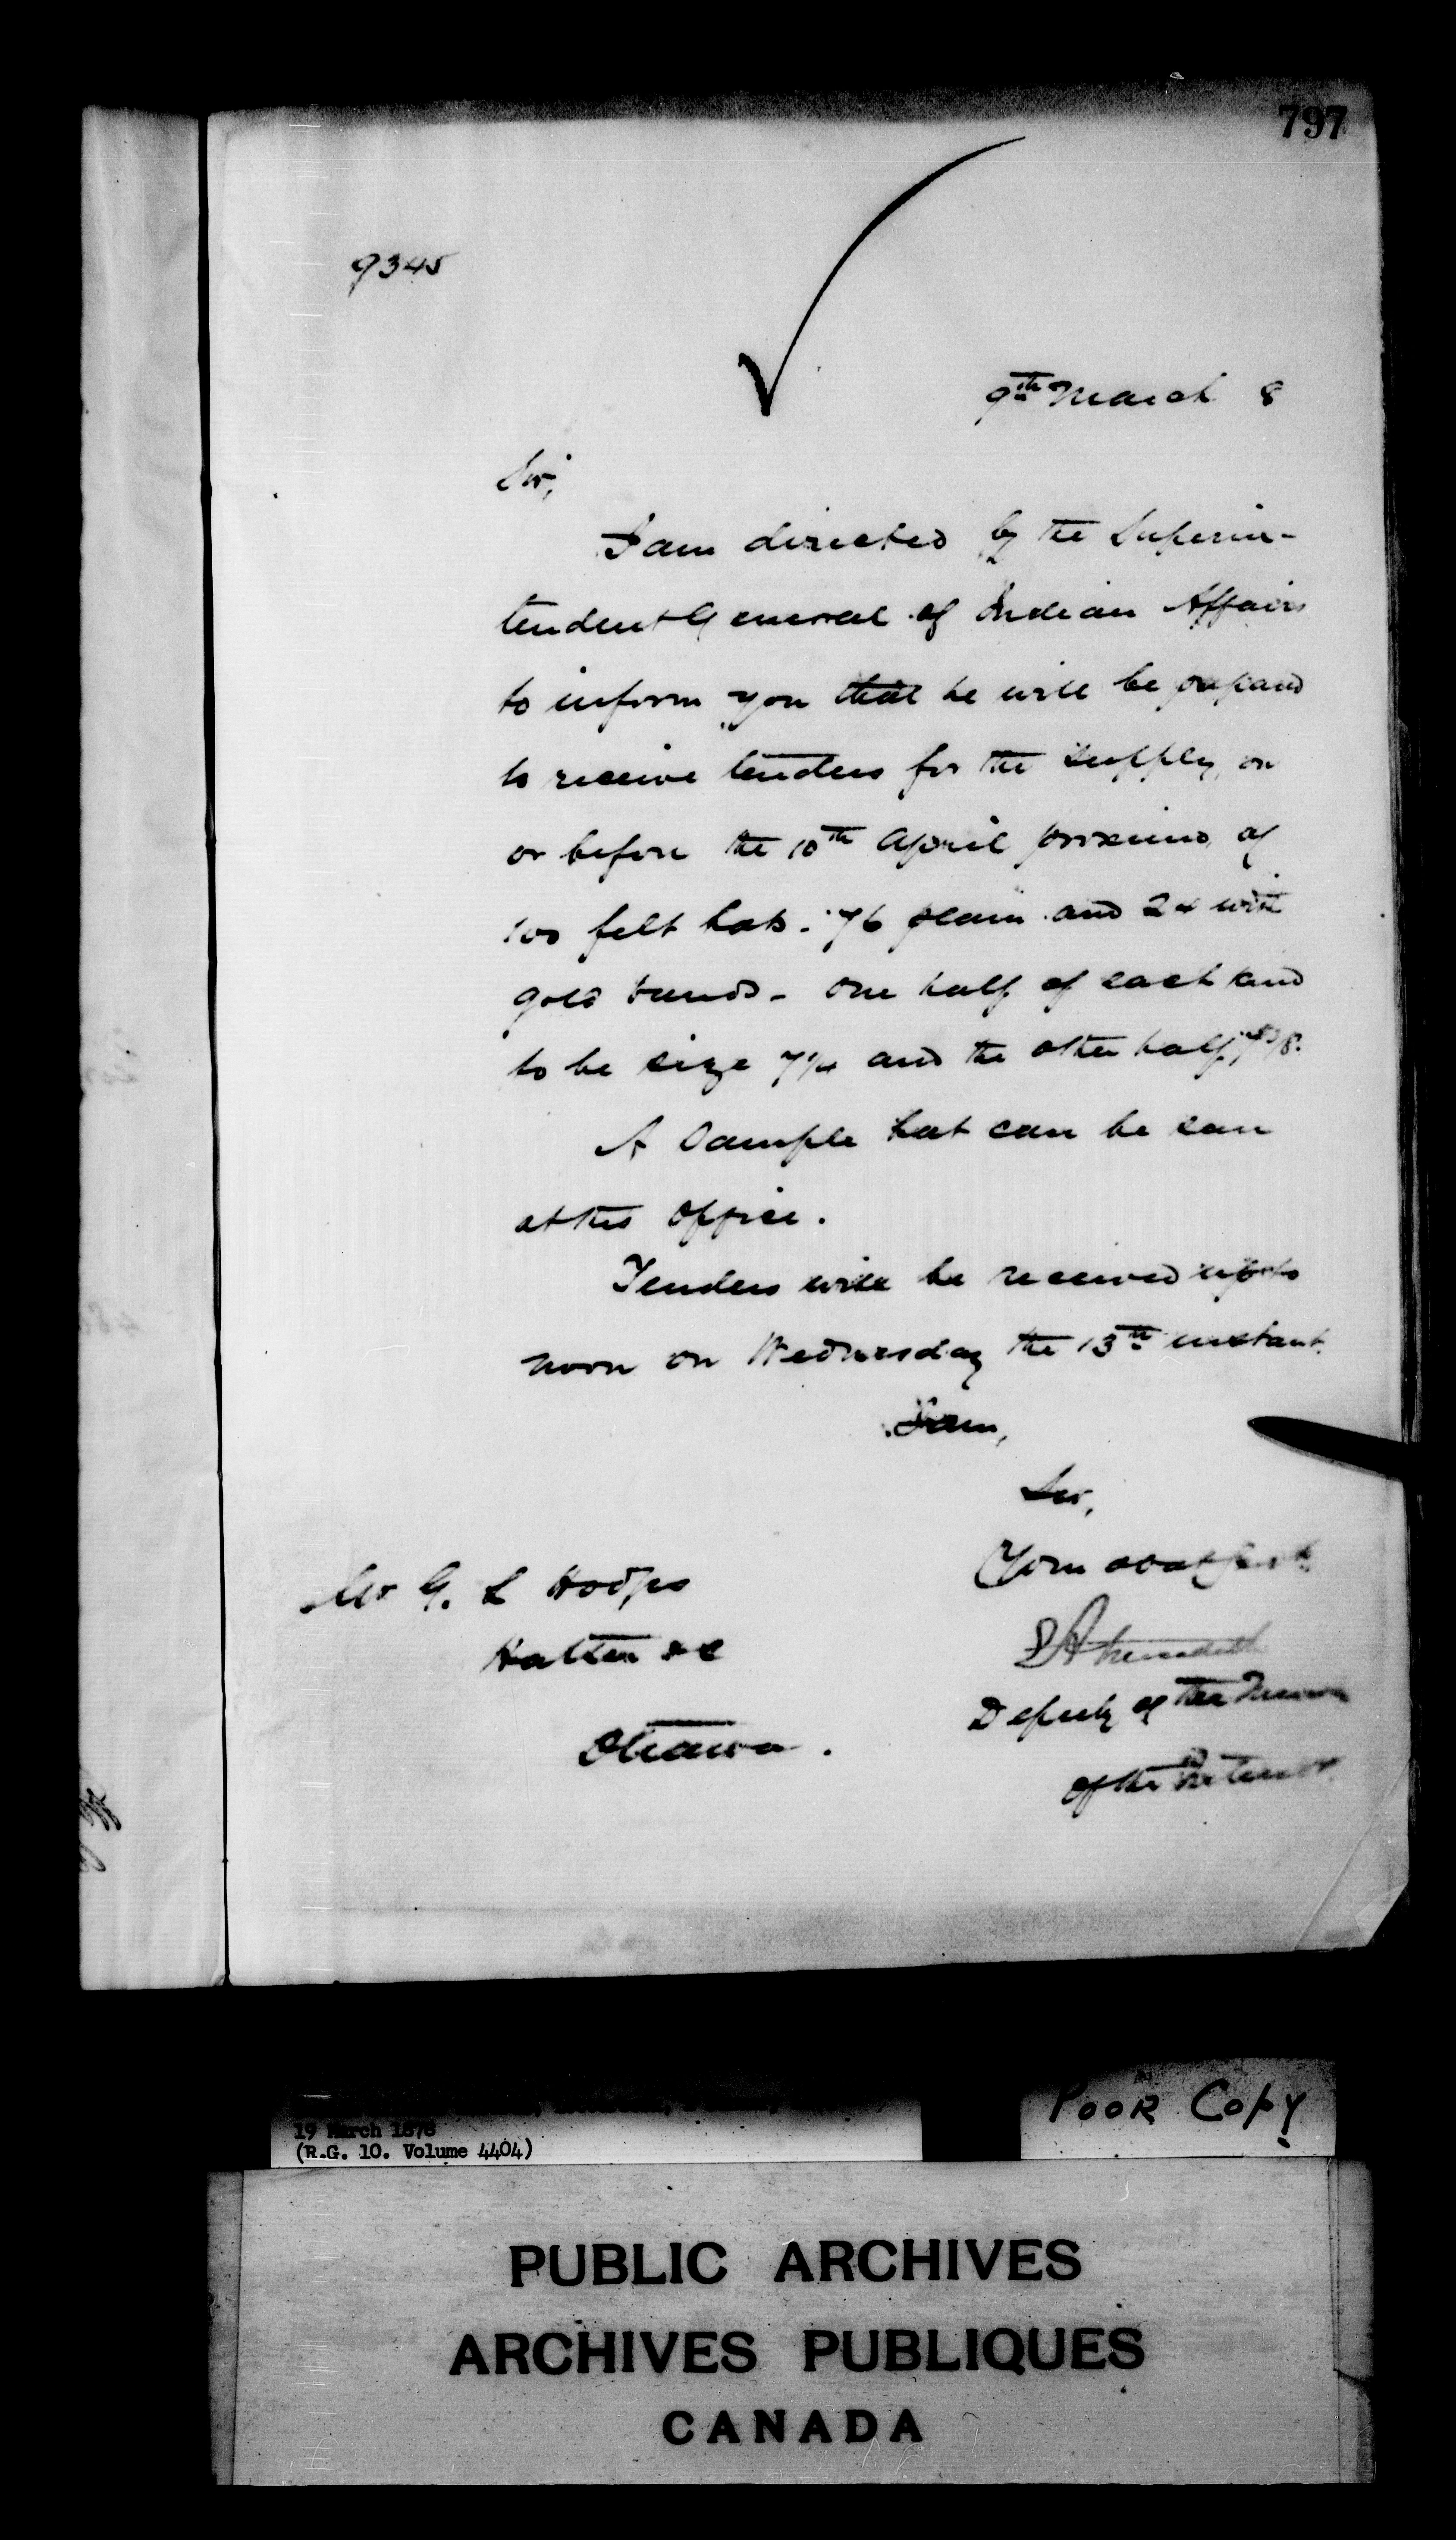 797
9345
9th March 8
Sir,
I am directed by the Superin-
tendent General of Indian Affairs
to inform you that he will be prepared
to receive tenders for the supply, on
or before the 10th April proximo, of
100 felt hats: 76 plain and 24 with
gold bands - One half of each kind
to be size 7 1/4 and the other half
A Sample hat can be seen
at this Office.
Tenders will be received up to
noon on Wednesday the 13th instant.
I am,
Sir,
Your
Mr G. L
Hatter &c
Ottawa.
Deputy of the
of the Interior
Poor Copy
19 March 1878
(R.G. 10. Volume 4404)
PUBLIC ARCHIVES
ARCHIVES PUBLIQUES
CANADA